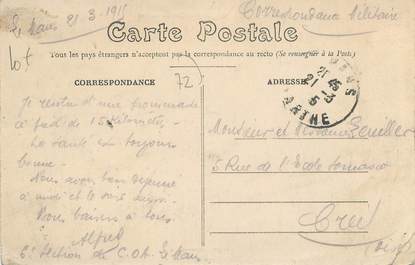 Le Mans 21-3-1915
Correspondance Militaire
Carte Postale
Tous les pays étrangers n'acceptent pas la correspondance au recto (Se renseigner à la Poste)
CORRESPONDANCE
72
ADRESSE
21 45
21-3
SARTHE
Je reviens d'une promenade
à pied de 15 Kilomètres
La santé est toujours
bonne
Nous avons bien
à midi et le soir
Bons baisers à tous
Alfred
6e Section de C.O.A. Le Mans
Monsieur et Madame
Rue de l'Ecole
Creil
Oise